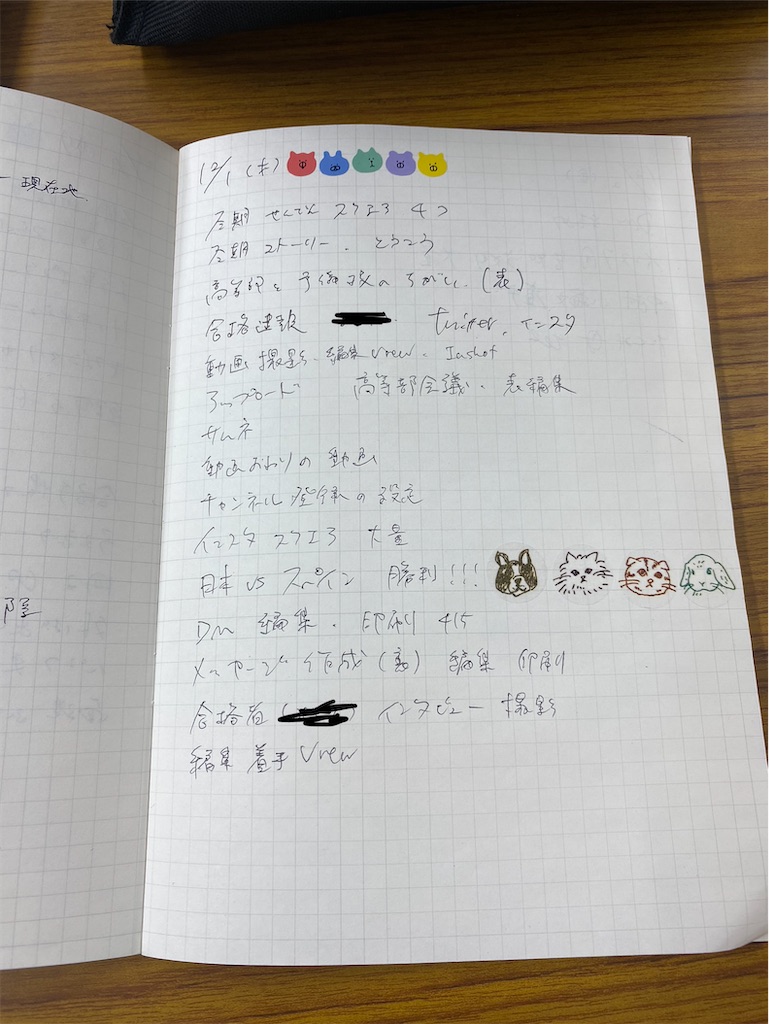 現在地
12/1 (木)
冬期 せんでん スクエア 4つ
冬期 ストーリー、とうこう
高等部と
(表)
合格速報 twitter、インスタ
動画撮影、編集 Vrew、Inshot
アップロード 高等部会議、表編集
サムネ
動画おわりの動画
チャンネル登録の設定
インスタ スクエア 大量
日本 vs スペイン 勝利!!!
DM 編集、印刷 415
メッセージ 作成(裏) 編集 印刷
合格者 インタビュー 撮影
編集着手 Vrew